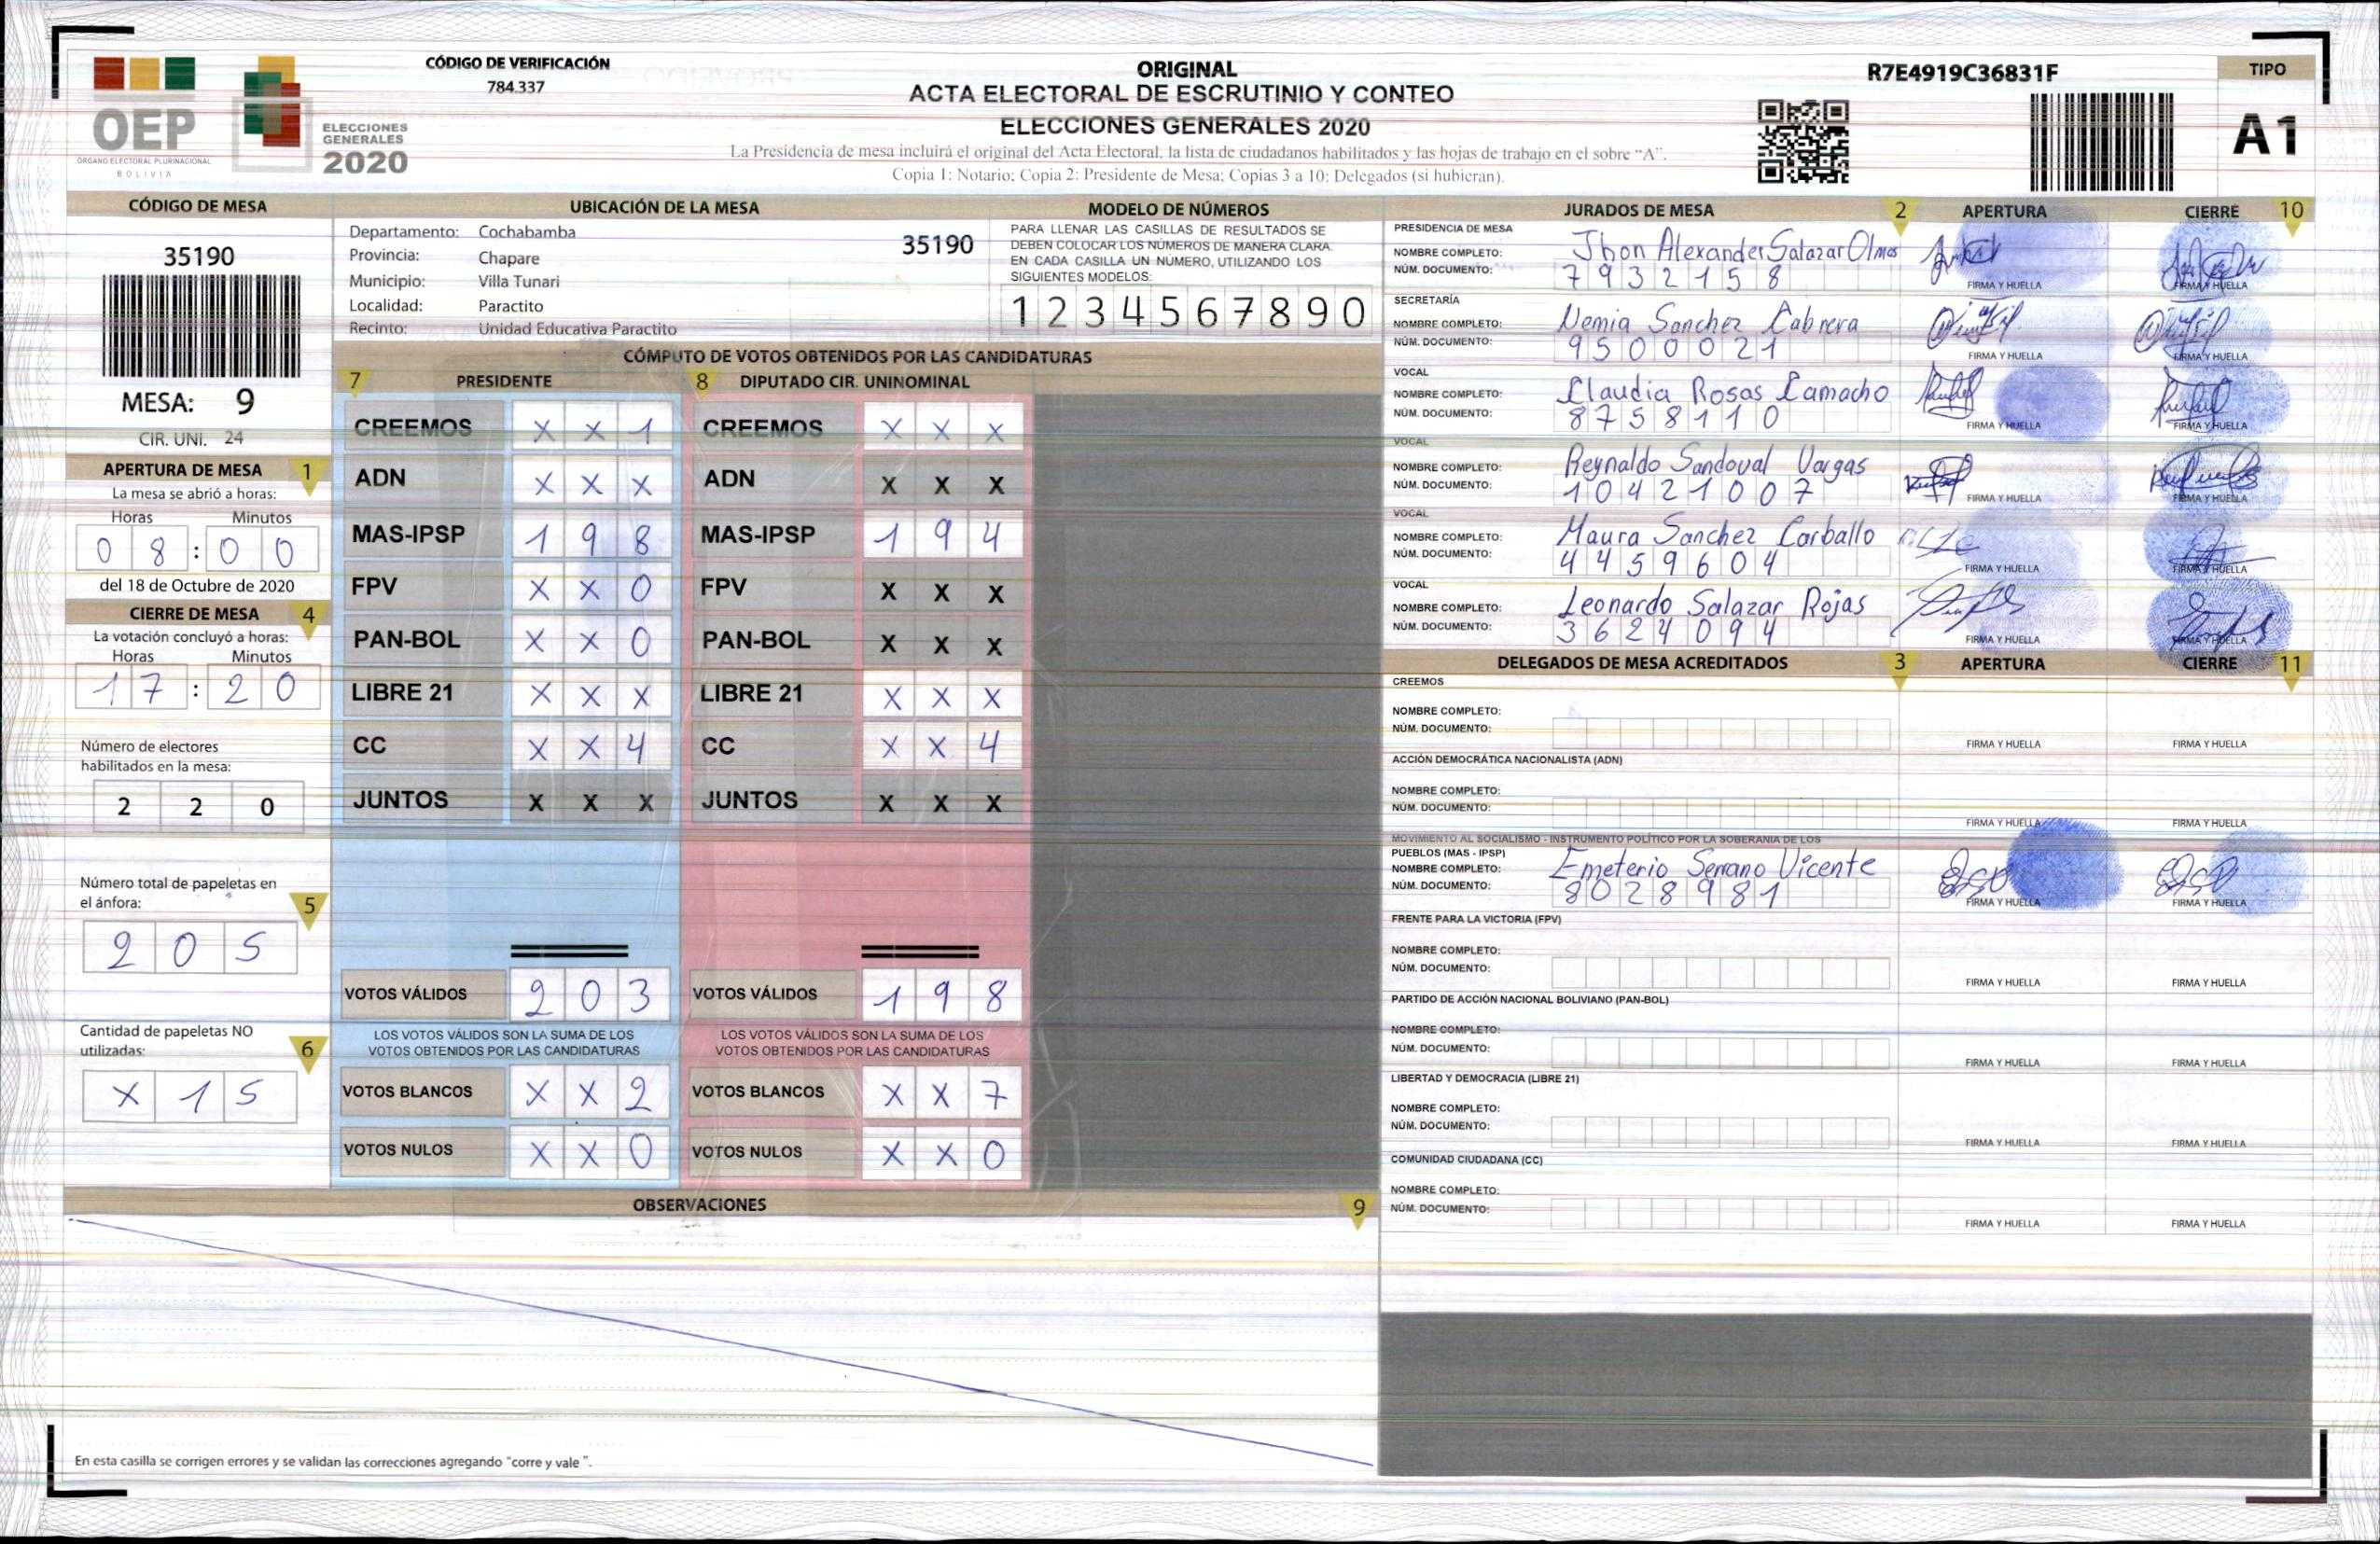 CÓDIGO DE VERIFICACIÓN
784.337
OEP
ÓRGANO ELECTORAL PLURINACIONAL
BOLIVIA
ELECCIONES
GENERALES
2020
ORIGINAL
ACTA ELECTORAL DE ESCRUTINIO Y CONTEO
ELECCIONES GENERALES 2020
La Presidencia de mesa incluirá el original del Acta Electoral, la lista de ciudadanos habilitados y las hojas de trabajo en el sobre “A”.
Copia 1: Notario; Copia 2: Presidente de Mesa; Copias 3 a 10: Delegados (si hubieran).
R7E4919C36831F
TIPO
A1
CÓDIGO DE MESA
35190
MESA: 9
CIR. UNI. 24
APERTURA DE MESA 1
La mesa se abrió a horas:
Horas Minutos
0 8 : 0 0
del 18 de Octubre de 2020
CIERRE DE MESA 4
La votación concluyó a horas:
Horas Minutos
1 7 : 2 0
Número de electores
habilitados en la mesa:
2 2 0
Número total de papeletas en
el ánfora:
5
2 0 5
Cantidad de papeletas NO
utilizadas:
6
X 1 5
UBICACIÓN DE LA MESA
Departamento: Cochabamba
35190
Provincia: Chapare
Municipio: Villa Tunari
Localidad: Paractito
Recinto: Unidad Educativa Paractito
MODELO DE NÚMEROS
PARA LLENAR LAS CASILLAS DE RESULTADOS SE
DEBEN COLOCAR LOS NÚMEROS DE MANERA CLARA.
EN CADA CASILLA UN NÚMERO, UTILIZANDO LOS
SIGUIENTES MODELOS:
1 2 3 4 5 6 7 8 9 0
CÓMPUTO DE VOTOS OBTENIDOS POR LAS CANDIDATURAS
7 PRESIDENTE 8 DIPUTADO CIR. UNINOMINAL
CREEMOS X X 1 CREEMOS X X X
ADN X X X ADN X X X
MAS-IPSP 1 9 8 MAS-IPSP 1 9 4
FPV X X 0 FPV X X X
PAN-BOL X X 0 PAN-BOL X X X
LIBRE 21 X X X LIBRE 21 X X X
CC X X 4 CC X X 4
JUNTOS X X X JUNTOS X X X
VOTOS VÁLIDOS 2 0 3 VOTOS VÁLIDOS 1 9 8
LOS VOTOS VÁLIDOS SON LA SUMA DE LOS LOS VOTOS VÁLIDOS SON LA SUMA DE LOS
VOTOS OBTENIDOS POR LAS CANDIDATURAS VOTOS OBTENIDOS POR LAS CANDIDATURAS
VOTOS BLANCOS X X 2 VOTOS BLANCOS X X 7
VOTOS NULOS X X 0 VOTOS NULOS X X 0
OBSERVACIONES 9
En esta casilla se corrigen errores y se validan las correcciones agregando "corre y vale ".
JURADOS DE MESA 2 APERTURA CIERRE 10
PRESIDENCIA DE MESA
NOMBRE COMPLETO: Jhon Alexander Salazar Olmos
NÚM. DOCUMENTO: 7 9 3 2 1 5 8
FIRMA Y HUELLA FIRMA Y HUELLA
SECRETARÍA
NOMBRE COMPLETO: Nemia Sanchez Cabrera
NÚM. DOCUMENTO: 9 5 0 0 0 2 1
FIRMA Y HUELLA FIRMA Y HUELLA
VOCAL
NOMBRE COMPLETO: Claudia Rosas Camacho
NÚM. DOCUMENTO: 8 7 5 8 1 1 0
FIRMA Y HUELLA FIRMA Y HUELLA
VOCAL
NOMBRE COMPLETO: Reynaldo Sandoval Vargas
NÚM. DOCUMENTO: 1 0 4 2 1 0 0 7
FIRMA Y HUELLA FIRMA Y HUELLA
VOCAL
NOMBRE COMPLETO: Maura Sanchez Carballo
NÚM. DOCUMENTO: 4 4 5 9 6 0 4
FIRMA Y HUELLA FIRMA Y HUELLA
VOCAL
NOMBRE COMPLETO: Leonardo Salazar Rojas
NÚM. DOCUMENTO: 3 6 2 4 0 9 4
FIRMA Y HUELLA FIRMA Y HUELLA
DELEGADOS DE MESA ACREDITADOS 3 APERTURA CIERRE 11
CREEMOS
NOMBRE COMPLETO:
NÚM. DOCUMENTO:
FIRMA Y HUELLA FIRMA Y HUELLA
ACCIÓN DEMOCRÁTICA NACIONALISTA (ADN)
NOMBRE COMPLETO:
NÚM. DOCUMENTO:
FIRMA Y HUELLA FIRMA Y HUELLA
MOVIMIENTO AL SOCIALISMO - INSTRUMENTO POLÍTICO POR LA SOBERANIA DE LOS
PUEBLOS (MAS - IPSP)
NOMBRE COMPLETO: Emeterio Serrano Vicente
NÚM. DOCUMENTO: 8 0 2 8 9 8 1
FIRMA Y HUELLA FIRMA Y HUELLA
FRENTE PARA LA VICTORIA (FPV)
NOMBRE COMPLETO:
NÚM. DOCUMENTO:
FIRMA Y HUELLA FIRMA Y HUELLA
PARTIDO DE ACCIÓN NACIONAL BOLIVIANO (PAN-BOL)
NOMBRE COMPLETO:
NÚM. DOCUMENTO:
FIRMA Y HUELLA FIRMA Y HUELLA
LIBERTAD Y DEMOCRACIA (LIBRE 21)
NOMBRE COMPLETO:
NÚM. DOCUMENTO:
FIRMA Y HUELLA FIRMA Y HUELLA
COMUNIDAD CIUDADANA (CC)
NOMBRE COMPLETO:
NÚM. DOCUMENTO:
FIRMA Y HUELLA FIRMA Y HUELLA